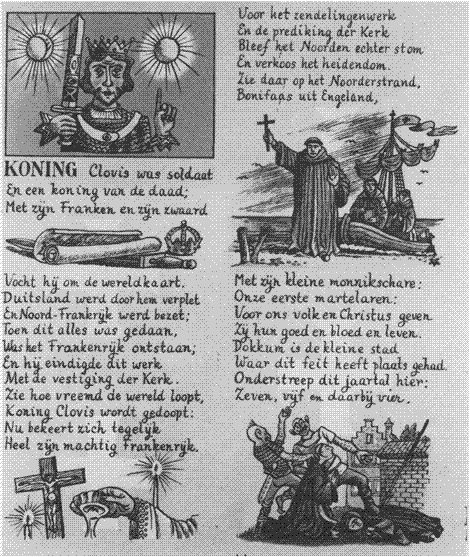 KONING Clovis was soldaat
En een koning van de daad;
Met zijn Franken en zijn zwaard
Vocht hij om de wereldkaart.
Duitsland werd door hem verplet
En Noord-Frankrijk werd bezet;
Toen dit alles was gedaan,
Was het Frankenrijk ontstaan;
En hij eindigde dit werk
Met de vestiging der Kerk.
Zie hoe vreemd de wereld loopt,
Koning Clovis wordt gedoopt:
Nu bekeert zich tegelijk
Heel zijn machtig Frankenrijk.
Voor het zendelingenwerk
En de prediking der Kerk
Bleef het Noorden echter stom
En verkoos het heidendom.
Zie daar op het Noorderstrand,
Bonifaas uit Engeland,
Met zijn kleine monnikschare:
Onze eerste martelaren:
Voor ons volk en Christus geven
Zij hun goed en bloed en leven.
Dokkum is de kleine stad
Waar dit feit heeft plaats gehad.
Onderstreep dit jaartal hier:
Zeven, vijf en daarbij vier.